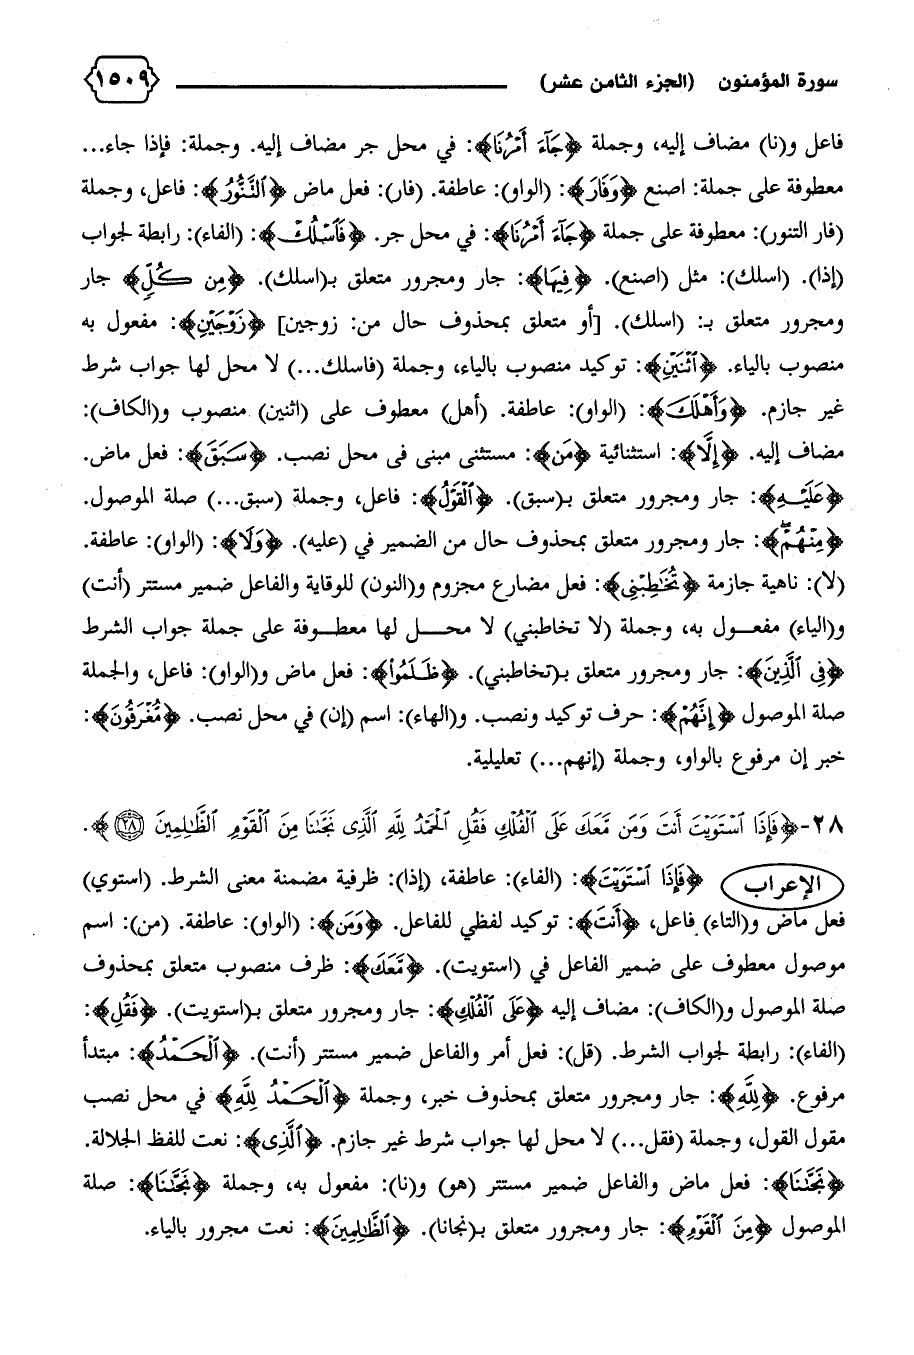 سورة المؤمنون (الجزء الثامن عشر) ١٥٠٩
فاعل و(نا) مضاف إليه، وجملة ﴿جَآءَ أَمْرُنَا﴾: في محل جر مضاف إليه. وجملة: فإذا جاء...
معطوفة على جملة: اصنع ﴿وَفَارَ﴾: (الواو): عاطفة. (فار): فعل ماض ﴿ٱلتَّنُّورُ﴾: فاعل، وجملة
(فار التنور): معطوفة على جملة ﴿جَآءَ أَمْرُنَا﴾: في محل جر. ﴿فَٱسْلُكْ﴾: (الفاء): رابطة لجواب
(إذا). (اسلك): مثل (اصنع). ﴿فِيهَا﴾: جار ومجرور متعلق بـ(اسلك). ﴿مِن كُلٍّ﴾ جار
ومجرور متعلق بـ: (اسلك). [أو متعلق بمحذوف حال من: زوجين] ﴿زَوْجَيْنِ﴾: مفعول به
منصوب بالياء. ﴿ٱثْنَيْنِ﴾: توكيد منصوب بالياء، وجملة (فاسلك...) لا محل لها جواب شرط
غير جازم. ﴿وَأَهْلَكَ﴾: (الواو): عاطفة. (أهل) معطوف على (اثنين) منصوب و(الكاف):
مضاف إليه. ﴿إِلَّا﴾: استثنائية ﴿مَن﴾: مستثنى مبنى فى محل نصب. ﴿سَبَقَ﴾: فعل ماض.
﴿عَلَيْهِ﴾: جار ومجرور متعلق بـ(سبق). ﴿ٱلْقَوْلُ﴾: فاعل، وجملة (سبق...) صلة الموصول.
﴿مِنْهُمْۖ﴾: جار ومجرور متعلق بمحذوف حال من الضمير في (عليه). ﴿وَلَا﴾: (الواو): عاطفة.
(لا): ناهية جازمة ﴿تُخَٰطِبْنِى﴾: فعل مضارع مجزوم و(النون) للوقاية والفاعل ضمير مستتر (أنت)
و(الياء) مفعول به، وجملة (لا تخاطبني) لا محل لها معطوفة على جملة جواب الشرط
﴿فِى ٱلَّذِينَ﴾: جار ومجرور متعلق بـ(تخاطبني). ﴿ظَلَمُوٓا۟﴾: فعل ماض و(الواو): فاعل، والجملة
صلة الموصول ﴿إِنَّهُم﴾: حرف توكيد ونصب. و(الهاء): اسم (إن) في محل نصب. ﴿مُّغْرَقُونَ﴾:
خبر إن مرفوع بالواو، وجملة (إنهم...) تعليلية.
٢٨-﴿فَإِذَا ٱسْتَوَيْتَ أَنتَ وَمَن مَّعَكَ عَلَى ٱلْفُلْكِ فَقُلِ ٱلْحَمْدُ لِلَّهِ ٱلَّذِى نَجَّىٰنَا مِنَ ٱلْقَوْمِ ٱلظَّٰلِمِينَ ٢٨﴾.
الإعراب ﴿فَإِذَا ٱسْتَوَيْتَ﴾: (الفاء): عاطفة، (إذا): ظرفية مضمنة معنى الشرط. (استوي)
فعل ماض و(التاء) فاعل، ﴿أَنتَ﴾: توكيد لفظي للفاعل. ﴿وَمَن﴾: (الواو): عاطفة. (من): اسم
موصول معطوف على ضمير الفاعل في (استويت). ﴿مَّعَكَ﴾: ظرف منصوب متعلق بمحذوف
صلة الموصول و(الكاف): مضاف إليه ﴿عَلَى ٱلْفُلْكِ﴾: جار ومجرور متعلق بـ(استويت). ﴿فَقُلِ﴾:
(الفاء): رابطة لجواب الشرط. (قل): فعل أمر والفاعل ضمير مستتر (أنت). ﴿ٱلْحَمْدُ﴾: مبتدأ
مرفوع. ﴿لِلَّهِ﴾: جار ومجرور متعلق بمحذوف خبر، وجملة ﴿ٱلْحَمْدُ لِلَّهِ﴾ في محل نصب
مقول القول، وجملة (فقل...) لا محل لها جواب شرط غير جازم. ﴿ٱلَّذِى﴾: نعت للفظ الجلالة.
﴿نَجَّىٰنَا﴾: فعل ماض والفاعل ضمير مستتر (هو) و(نا): مفعول به، وجملة ﴿نَجَّىٰنَا﴾: صلة
الموصول ﴿مِنَ ٱلْقَوْمِ﴾: جار ومجرور متعلق بـ(نجانا). ﴿ٱلظَّٰلِمِينَ﴾: نعت مجرور بالياء.